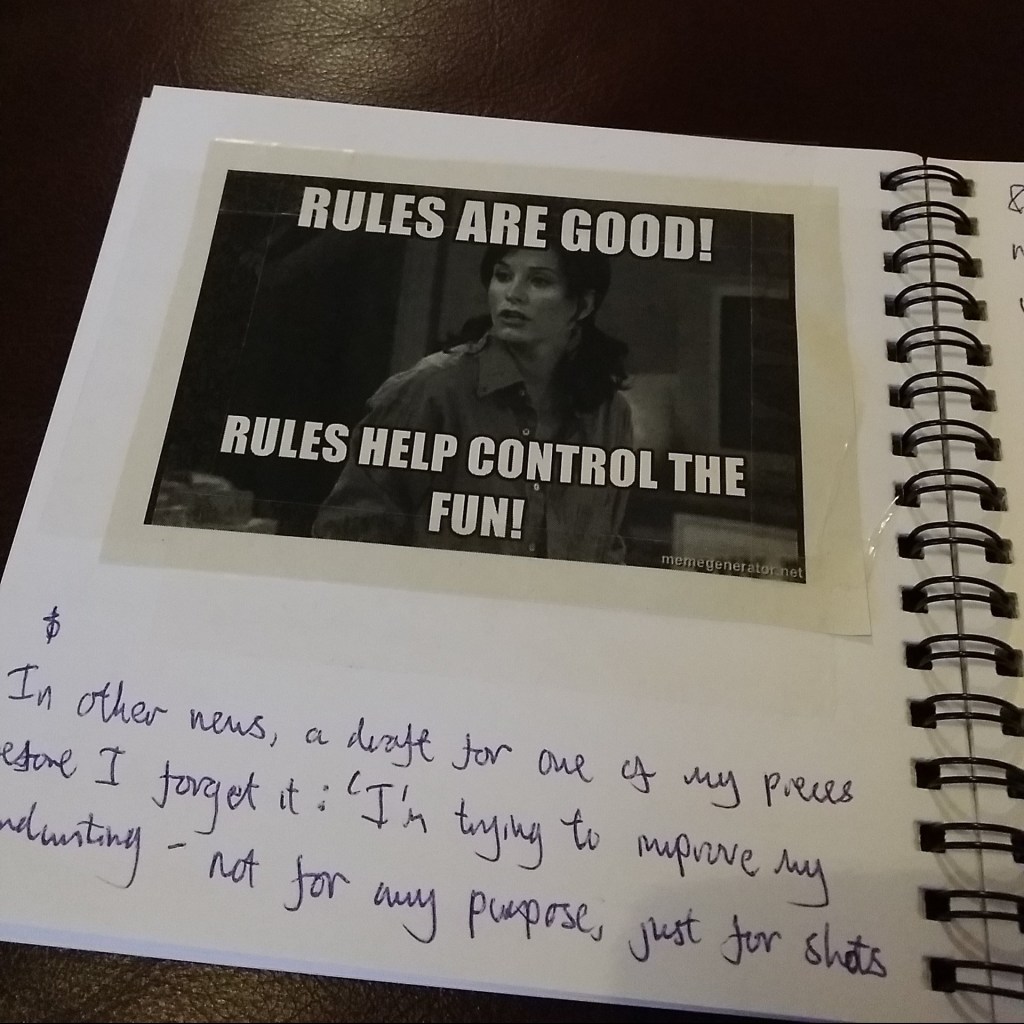 RULES ARE GOOD!
RULES HELP CONTROL THE
FUN!
memegenerator.net
$
In other news, a draft for one of my pieces
before I forget it: 'I'm trying to improve my
handwriting - not for any purpose, just for shots